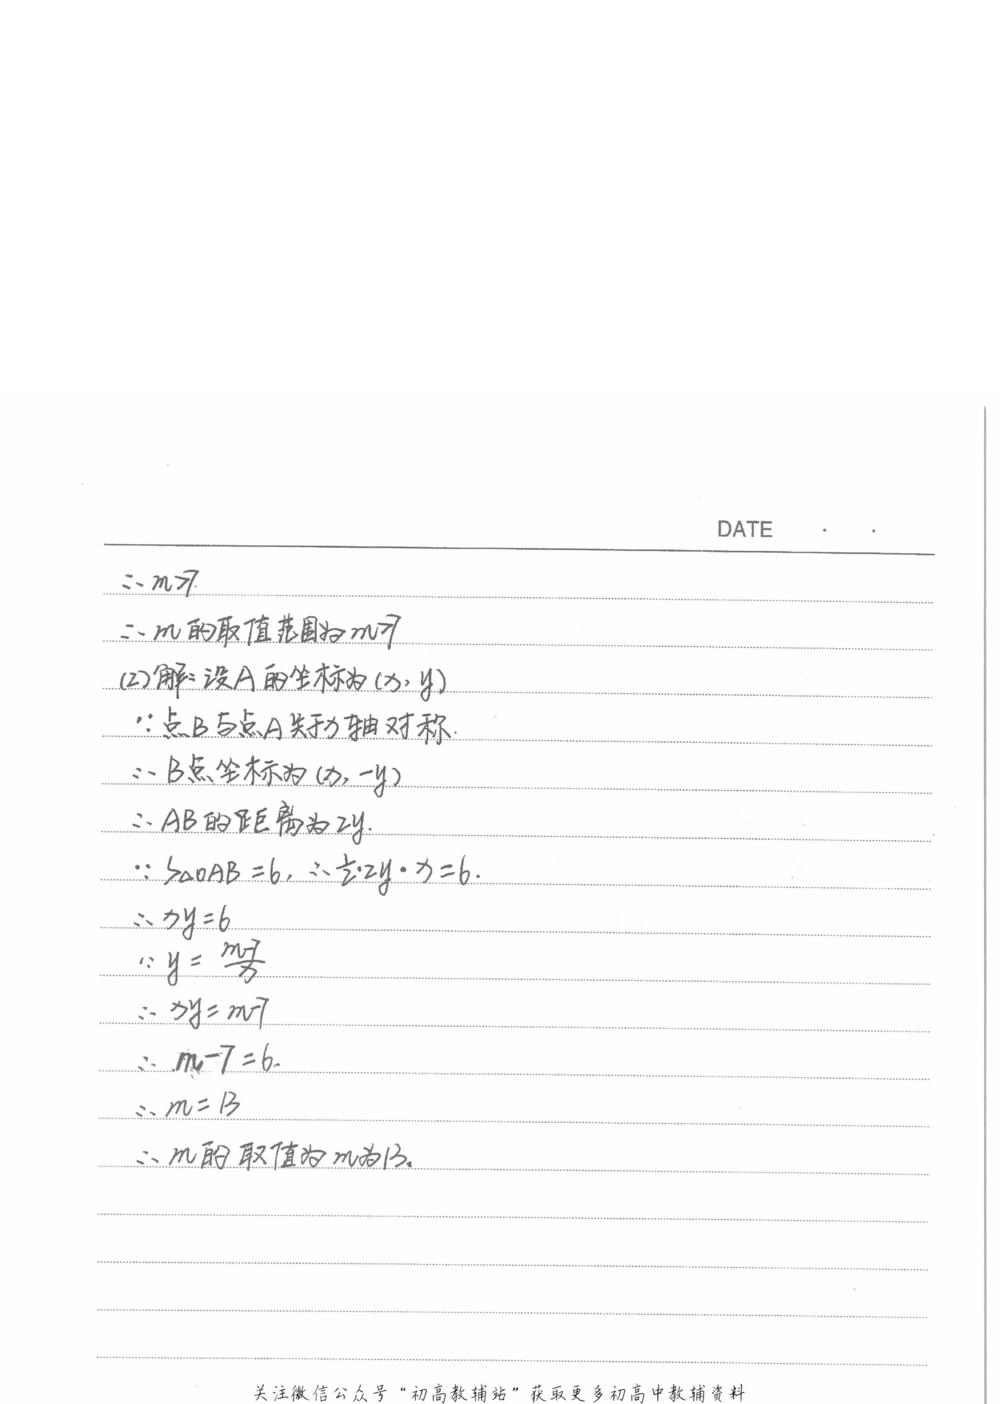 DATE · ·
∴ m>7.
∴ m的取值范围为m>7
(2)解: 设A的坐标为(x, y)
∵点B与点A关于x轴对称.
∴ B点坐标为(x, -y)
∴ AB的距离为2y.
∵ S△OAB=6, ∴ ½·2y·x=6.
∴ xy=6
∵ y= m-7/x
∴ xy=m-7
∴ m-7=6.
∴ m=13
∴ m的取值为m为13.
关注微信公众号“初高教辅站”获取更多初高中教辅资料